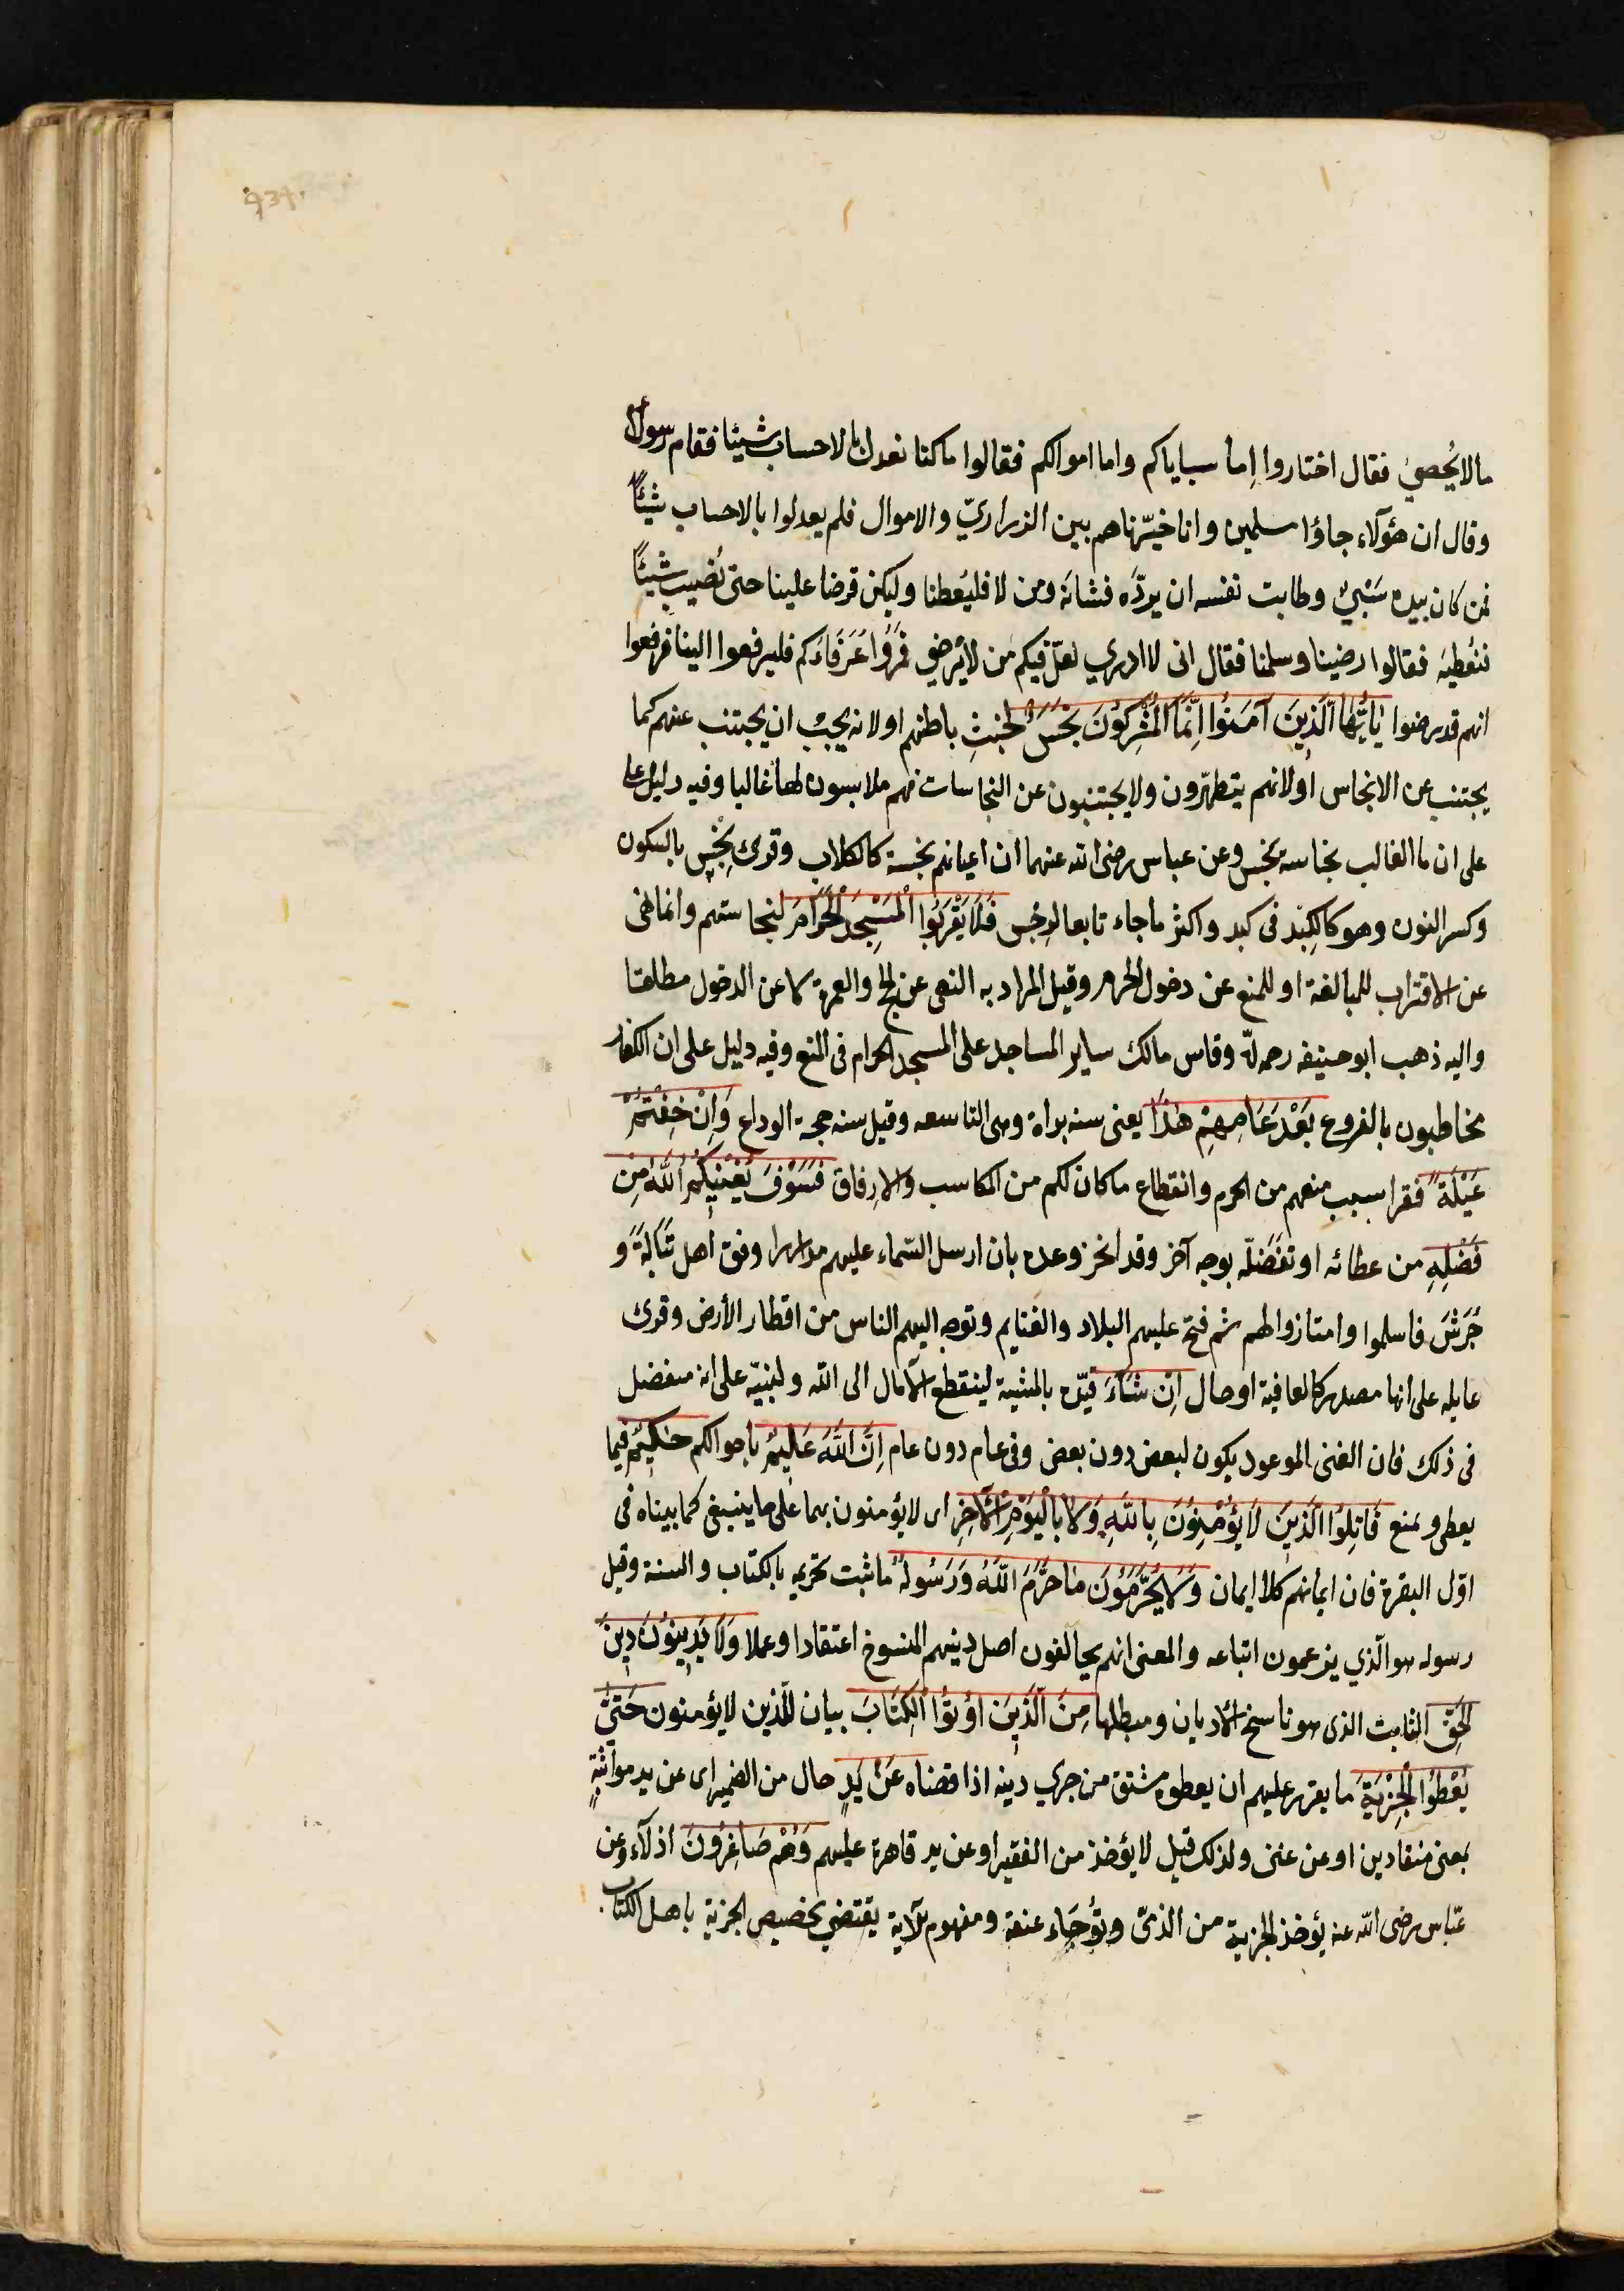 مالا يُحصى فقال اختاروا إما سباياكم واما اموالكم فقالوا ماكنا نعدل بالاحساب شيئا فقام رسول الله
وقال ان هؤلاء جاؤا مسلمين وانا خيّرناهم بين الذراريّ والاموال فلم يعدلوا بالاحساب شيئًا
فمن كان بيده سَبْيٌ وطابت نفسه ان يردّه فشانه ومن لا فليُعطنا وليكن قرضا علينا حتى نُصيب شيئًا
فنُعطيه فقالوا رضينا وسلمنا فقال انى لا ادري لعلّ فيكم من لا يَرضى فمُروا عُرَفَاءَكم فليرفعوا الينا فرفعوا
انهم قد رضوا يَاأَيُّهَا الَّذِينَ آمَنُوا إِنَّمَا الْمُشْرِكُونَ نَجَسٌ لخبثِ باطنهم او لانه يجبُ ان يجتنب عنهم كما
يجتنب عن الانجاس اولانهم لا يتطهّرون ولا يجتنبون عن النجاسات فهم ملابسون لها غالبا وفيه دليل على
على ان ما الغالب نجاسته نجس وعن عباس رضى الله عنهما ان اعيانهم نجسة كالكلاب وقرئ نِجْس بالسكون
وكسر النون وهو ككِبْد فى كبد واكثر ما جاء تابعا لرِجْس فَلَا يَقْرَبُوا الْمَسْجِدَ الْحَرَامَ لنجاستهم وانما نهى
عن الاقتراب للمبالغة او للمنع عن دخول الحرم وقيل المراد به النهى عن الحج والعمرة لا عن الدخول مطلقا
واليه ذهب ابو حنيفه رحمه الله وقاس مالك ساير المساجد على المسجد الحرام فى المنع وفيه دليل على ان الكفار
مخاطبون بالفروع بَعْدَ عَامِهِمْ هَذَا يعنى سنه براة وهى التاسعه وقيل سنه حجة الوداع وَإِنْ خِفْتُمْ
عَيْلَةً فقرا بسبب منعهم من الحرم وانقطاع ما كان لكم من المكاسب والارفاق فَسَوْفَ يُغْنِيكُمُ اللَّهُ مِنْ
فَضْلِهِ من عطائه او تفضّله بوجه آخر وقد انجز وعده بان ارسل السّماء عليهم مدرارا ووفق أهل تَبَالَةَ و
جُرَشَ فاسلموا وامتازوا لهم ثم فتح عليهم البلاد والغنايم وتوجه اليهم الناس من اقطار الأرض وقرئ
عايله على انها مصدر كالعافية او حال إِنْ شَاءَ قيّده بالمشية لينقطع الآمال الى الله ولينبّه على انه متفضل
فى ذلك فان الغنى الموعود يكون لبعض دون بعض وفى عام دون عام إِنَّ اللَّهَ عَلِيمٌ باحوالكم حَكِيمٌ فيما
يعطى ويمنع قَاتِلُوا الَّذِينَ لَا يُؤْمِنُونَ بِاللَّهِ وَلَا بِالْيَوْمِ الْآخِرِ اى لا يؤمنون بهما على ما ينبغى كما بيناه فى
اوّل البقرة فان ايمانهم كلا ايمان وَلَا يُحَرِّمُونَ مَا حَرَّمَ اللَّهُ وَرَسُولُهُ ما ثبت تحريمه بالكتاب والسنة وقيل
رسوله هو الّذي يزعمون اتباعه والمعنى انهم يخالفون اصل دينهم المنسوخ اعتقادا وعملا وَلَا يَدِينُونَ دِينَ
الْحَقِّ الثابت الذى هو ناسخ الاديان ومبطلها مِنَ الَّذِينَ أُوتُوا الْكِتَابَ بيان للّذين لا يؤمنون حَتَّى
يُعْطُوا الْجِزْيَةَ ما يقرر عليهم ان يعطوه مشتق من جزي دينه اذا قضاه عَنْ يَدٍ حال من الضمير اى عن يد مواتيةٍ
بمعنى منقادين او عن غنى ولذلك قيل لا يؤخذ من الفقير او عن يد قاهرة عليهم وَهُمْ صَاغِرُونَ اذلّاء وعن
عبّاس رضى الله عنه يؤخذ الجزية من الذمّى وتُوجَاء عنقه ومفهوم الآية يقتضي تخصيص الجزية باهل الكتاب